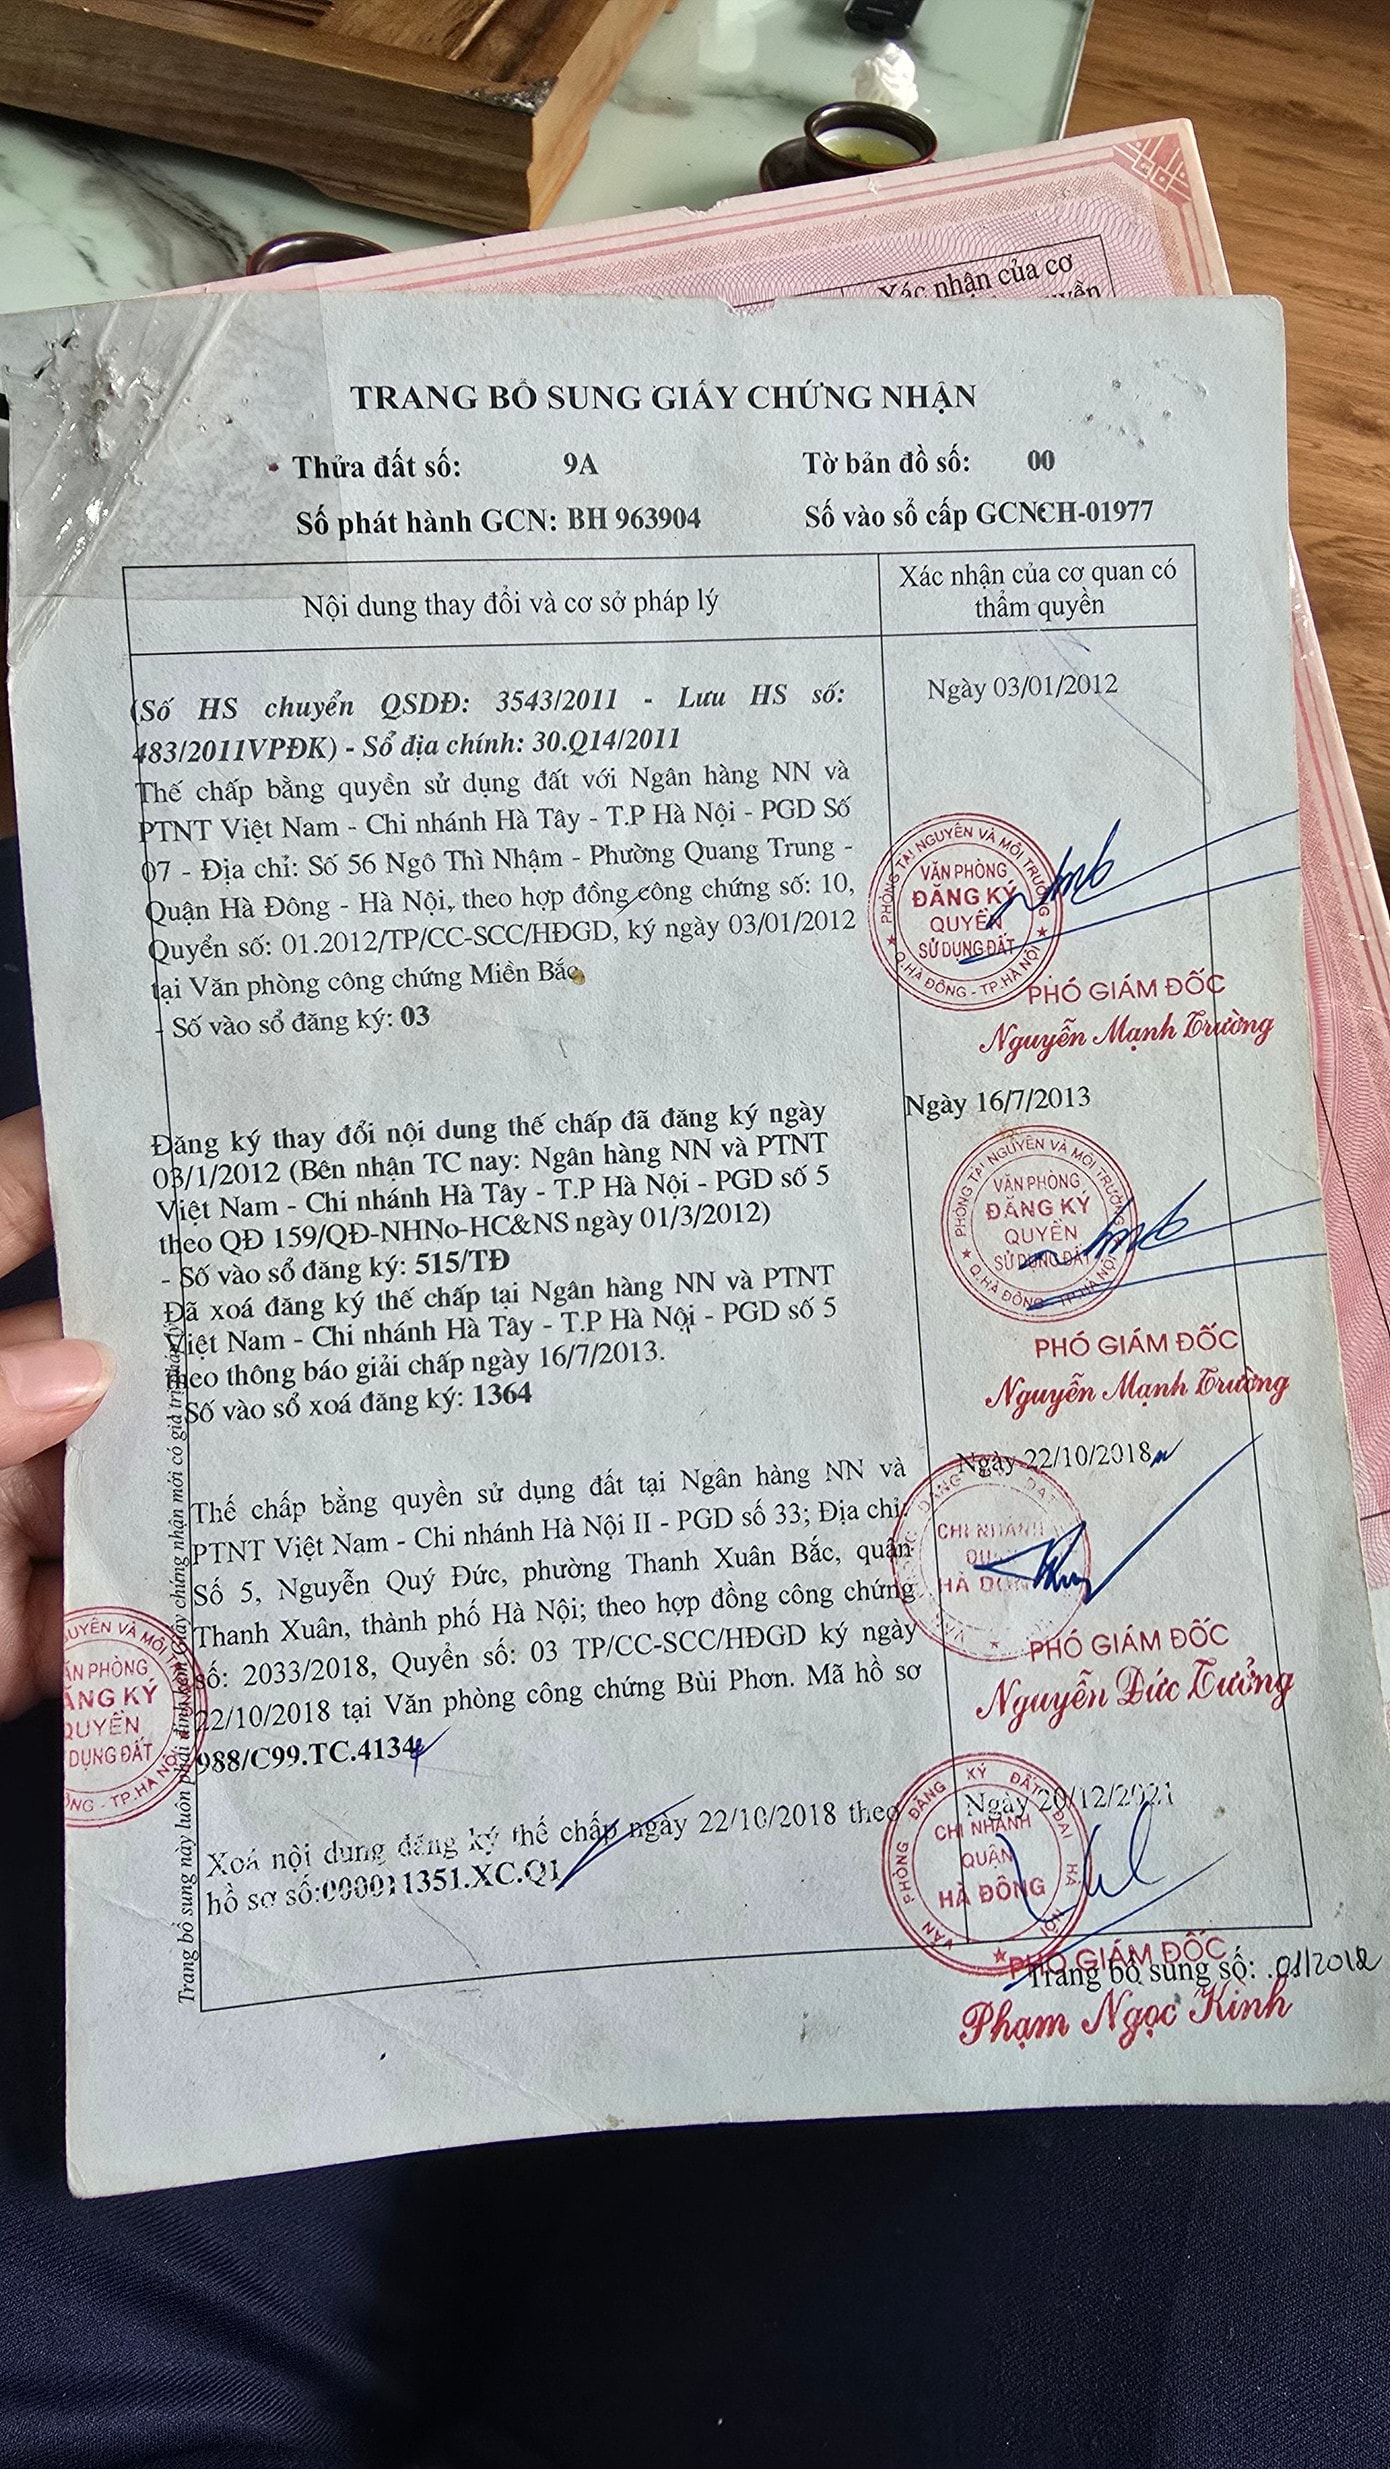 Xác nhận của cơ
TRANG BỔ SUNG GIẤY CHỨNG NHẬN
Thửa đất số: 9A Tờ bản đồ số: 00
Số phát hành GCN: BH 963904 Số vào sổ cấp GCN:CH-01977
Nội dung thay đổi và cơ sở pháp lý
Xác nhận của cơ quan có
thẩm quyền
(Số HS chuyển QSDĐ: 3543/2011 - Lưu HS số:
483/2011VPĐK) - Sổ địa chính: 30.Q14/2011
Thế chấp bằng quyền sử dụng đất với Ngân hàng NN và
PTNT Việt Nam - Chi nhánh Hà Tây - T.P Hà Nội - PGD Số
07 - Địa chỉ: Số 56 Ngô Thì Nhậm - Phường Quang Trung -
Quận Hà Đông - Hà Nội, theo hợp đồng công chứng số: 10,
Quyển số: 01.2012/TP/CC-SCC/HĐGD, ký ngày 03/01/2012
tại Văn phòng công chứng Miền Bắc
- Số vào sổ đăng ký: 03
Ngày 03/01/2012
PHÒNG TÀI NGUYÊN VÀ MÔI TRƯỜNG
VĂN PHÒNG
ĐĂNG KÝ
QUYỀN
SỬ DỤNG ĐẤT
Q.HÀ ĐÔNG - TP.HÀ NỘI
PHÓ GIÁM ĐỐC
Nguyễn Mạnh Trường
Đăng ký thay đổi nội dung thế chấp đã đăng ký ngày
03/1/2012 (Bên nhận TC nay: Ngân hàng NN và PTNT
Việt Nam - Chi nhánh Hà Tây - T.P Hà Nội - PGD số 5
theo QĐ 159/QĐ-NHNo-HC&NS ngày 01/3/2012)
- Số vào sổ đăng ký: 515/TĐ
Đã xoá đăng ký thế chấp tại Ngân hàng NN và PTNT
Việt Nam - Chi nhánh Hà Tây - T.P Hà Nội - PGD số 5
theo thông báo giải chấp ngày 16/7/2013.
Số vào sổ xoá đăng ký: 1364
Ngày 16/7/2013
PHÒNG TÀI NGUYÊN VÀ MÔI TRƯỜNG
VĂN PHÒNG
ĐĂNG KÝ
QUYỀN
SỬ DỤNG ĐẤT
Q.HÀ ĐÔNG - TP.HÀ NỘI
PHÓ GIÁM ĐỐC
Nguyễn Mạnh Trường
Thế chấp bằng quyền sử dụng đất tại Ngân hàng NN và
PTNT Việt Nam - Chi nhánh Hà Nội II - PGD số 33; Địa chỉ:
Số 5, Nguyễn Quý Đức, phường Thanh Xuân Bắc, quận
Thanh Xuân, thành phố Hà Nội; theo hợp đồng công chứng
số: 2033/2018, Quyển số: 03 TP/CC-SCC/HĐGD ký ngày
22/10/2018 tại Văn phòng công chứng Bùi Phơn. Mã hồ sơ
988/C99.TC.4134
Ngày 22/10/2018
CHI NHÁNH
QUẬN
HÀ ĐÔNG
PHÓ GIÁM ĐỐC
Nguyễn Đức Tưởng
Xoá nội dung đăng ký thế chấp ngày 22/10/2018 theo
hồ sơ số:000011351.XC.Q1
Ngày 20/12/2021
VĂN PHÒNG ĐĂNG KÝ ĐẤT ĐAI HÀ NỘI
CHI NHÁNH
QUẬN
HÀ ĐÔNG
PHÓ GIÁM ĐỐC
Phạm Ngọc Kinh
Trang bổ sung số: 01/2012
UYÊN VÀ MÔI
VĂN PHÒNG
ĐĂNG KÝ
QUYỀN
DỤNG ĐẤT
TP.HÀ NỘI
Trang bổ sung này luôn phải đính kèm Giấy chứng nhận mới có giá trị pháp lý